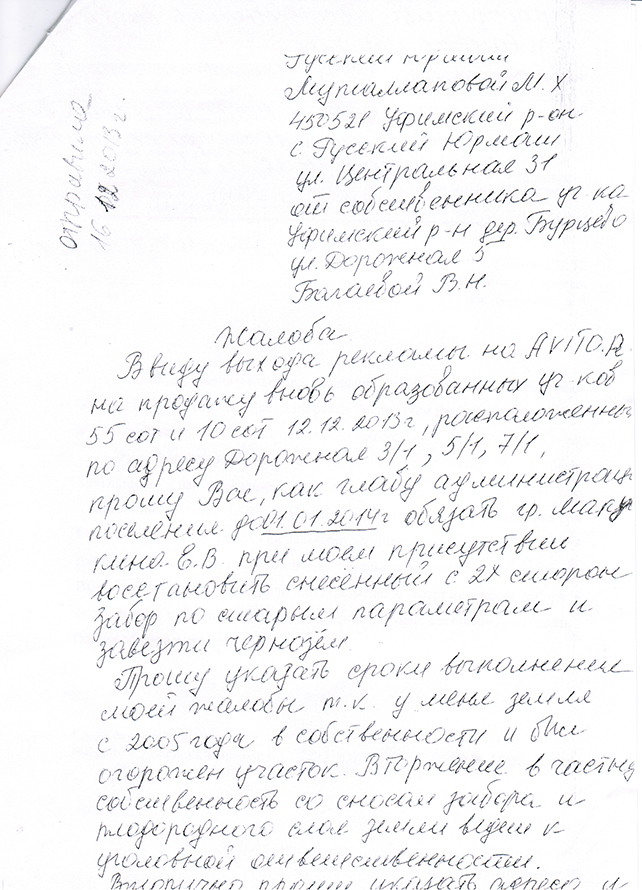 отправила
16 12 2013 г.
Русский Юрмаш
Мутыаллаповой М. Х
450521 Уфимский р-он
с. Русский Юрмаш
ул. Центральная 31
от собственника уч-ка
Уфимский р-н дер. Бурцево
ул. Дорожная 5
Багаевой В. Н.
Жалоба
В виду выхода рекламы на AVITO.
на продажу вновь образованных уч-ков
55 сот и 10 сот 12.12.2013г, расположенных
по адресу Дорожная 3/1, 5/1, 7/1,
прошу Вас, как главу администрации
поселения до 01.01.2014г обязать гр. Маку
кина Е.В. при моем присутствии
восстановить снесённый с 2х сторон
забор по старым параметрам и
завезти чернозём.
Прошу указать сроки выполнение
моей жалобы т.к. у меня земля
с 2005 года в собственности и был
огорожен участок. Вторжение в частную
собственность со сносом забора и
плодородного слоя земли ведет к
уголовной ответственности.
Вторично прошу указать